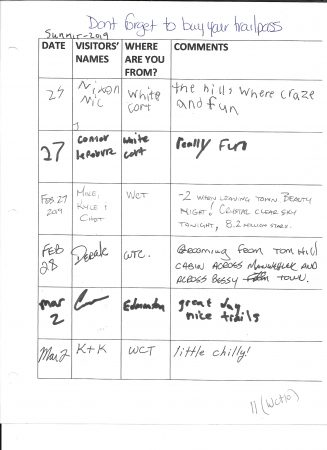 Dont forget to buy your trailpass
Summir-2019
DATE VISITORS' NAMES WHERE ARE YOU FROM? COMMENTS
25 Nixon Nic White Cort the hills where craze and fun
27 Connor White Cort really Fun
Feb 27 2019 Mike, Kyle & Chet WCT -2 WHEN LEAVING TOWN BEAUTY
NIGHT! CRYSTAL CLEAR SKY
TONIGHT, 8.2 MILLION STARS.
FEB 28 Derek WTC. COMING FROM TOM HILL
CABIN ACROSS AND
ACROSS BESSY TOWN.
mar 2 Edmonton great day
nice trails
Mar 2 K+K WCT little chilly!
11 (Wct10)